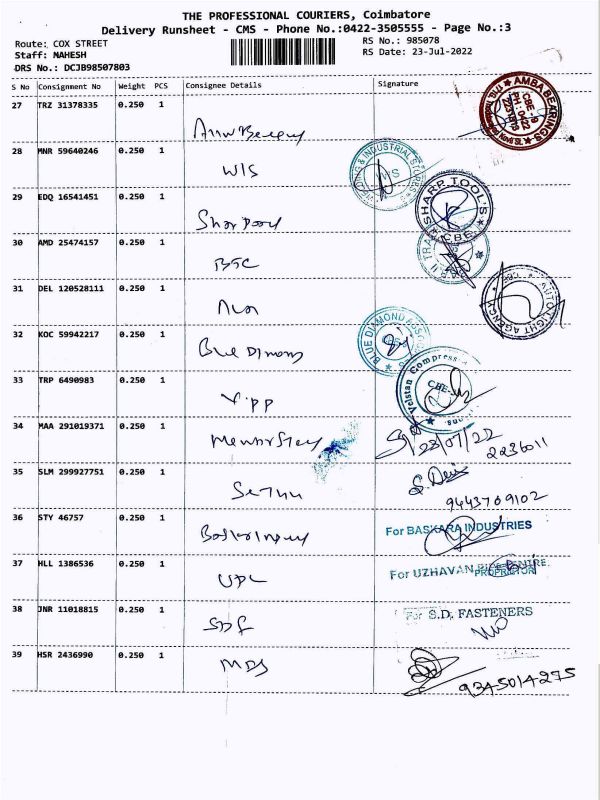 THE PROFESSIONAL COURIERS, Coimbatore
Delivery Runsheet - CMS - Phone No.:0422-3505555 - Page No.:3
Route: COX STREET
RS No.: 985078
Staff: MAHESH
RS Date: 23-Jul-2022
DRS No.: DCJB98507803
S No Consignment No Weight PCS Consignee Details Signature
27 TRZ 31378335 0.250 1
AMBA BEARINGS
28 MNR 59640246 0.250 1 WIS
& INDUSTRIAL STORES
29 EDQ 16541451 0.250 1
SHARP TOOL'S CBE
30 AMD 25474157 0.250 1 BSC
31 DEL 120528111 0.250 1
AUTOLIGHT AGENCY
32 KOC 59942217 0.250 1 Blue Dimond
BLUE DIAMOND
33 TRP 6490983 0.250 1
Velstan Compress
34 MAA 291019371 0.250 1
23/07/22
2236011
35 SLM 299927751 0.250 1
9443769102
36 STY 46757 0.250 1
For BASKARA INDUSTRIES
37 HLL 1386536 0.250 1 UDC
For UZHAVAN
PROPRIETOR
38 JNR 11018815 0.250 1 SDF
For S.D. FASTENERS
39 HSR 2436990 0.250 1 MDS
9345014275